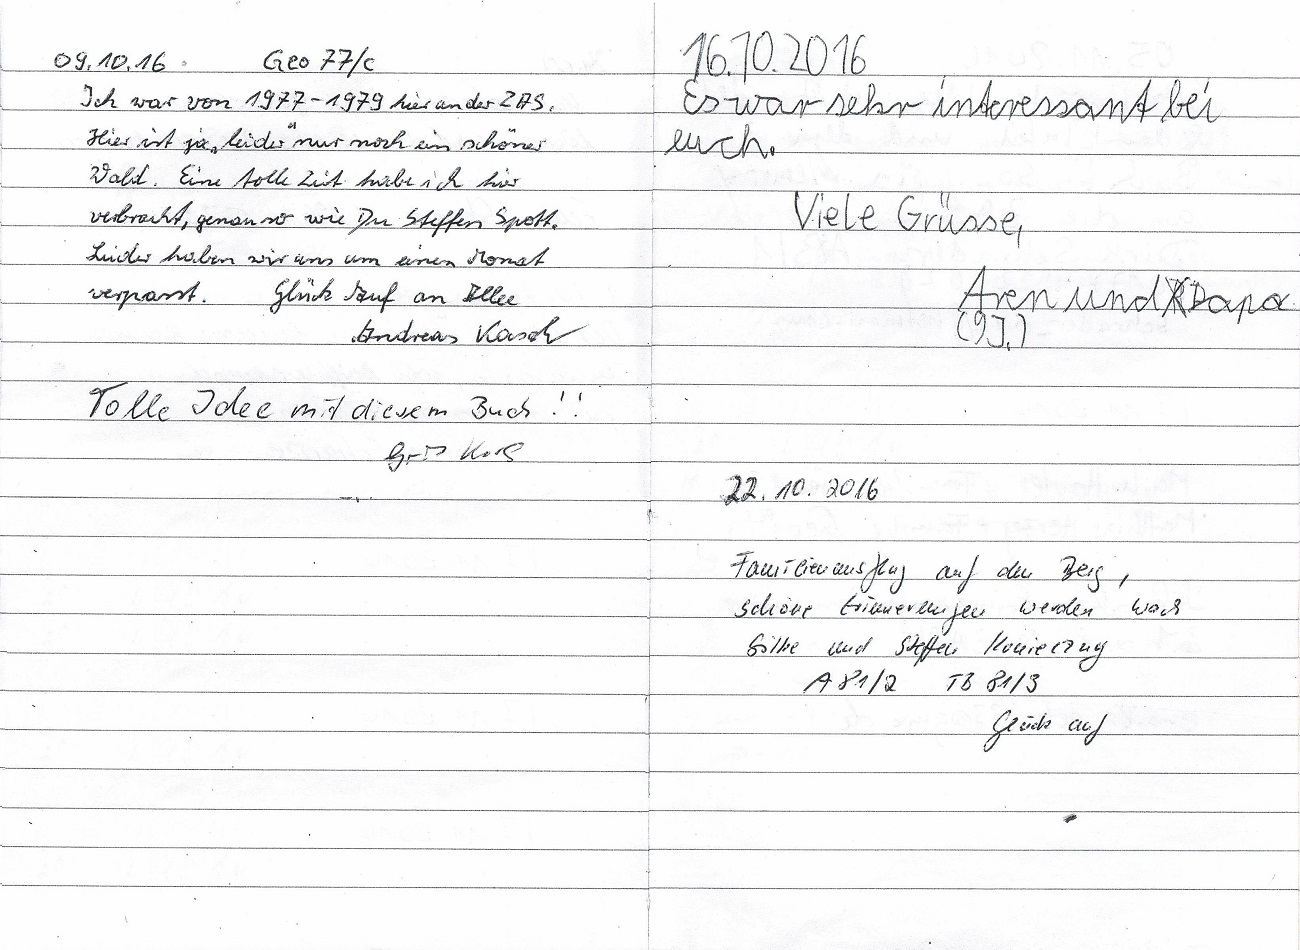 09.10.16 Geo 77/c
Ich war von 1977-1979 hier an der ZAS.
Hier ist ja „leider" nur noch ein schöner
Wald. Eine tolle Zeit habe ich hier
verbracht, genau so wie Du Steffen Spott.
Leider haben wir uns um einen Monat
verpasst. Glück Auf an Alle
Andreas Kasch
Tolle Idee mit diesem Buch !!
16.10.2016
Es war sehr interessant bei
euch.
Viele Grüsse,
Aren und Papa
(9J.)
22.10.2016
Familienausflug auf den Berg,
schöne Erinnerungen werden wach
Silke und Steffen
A81/2 TB 81/3
Glück auf